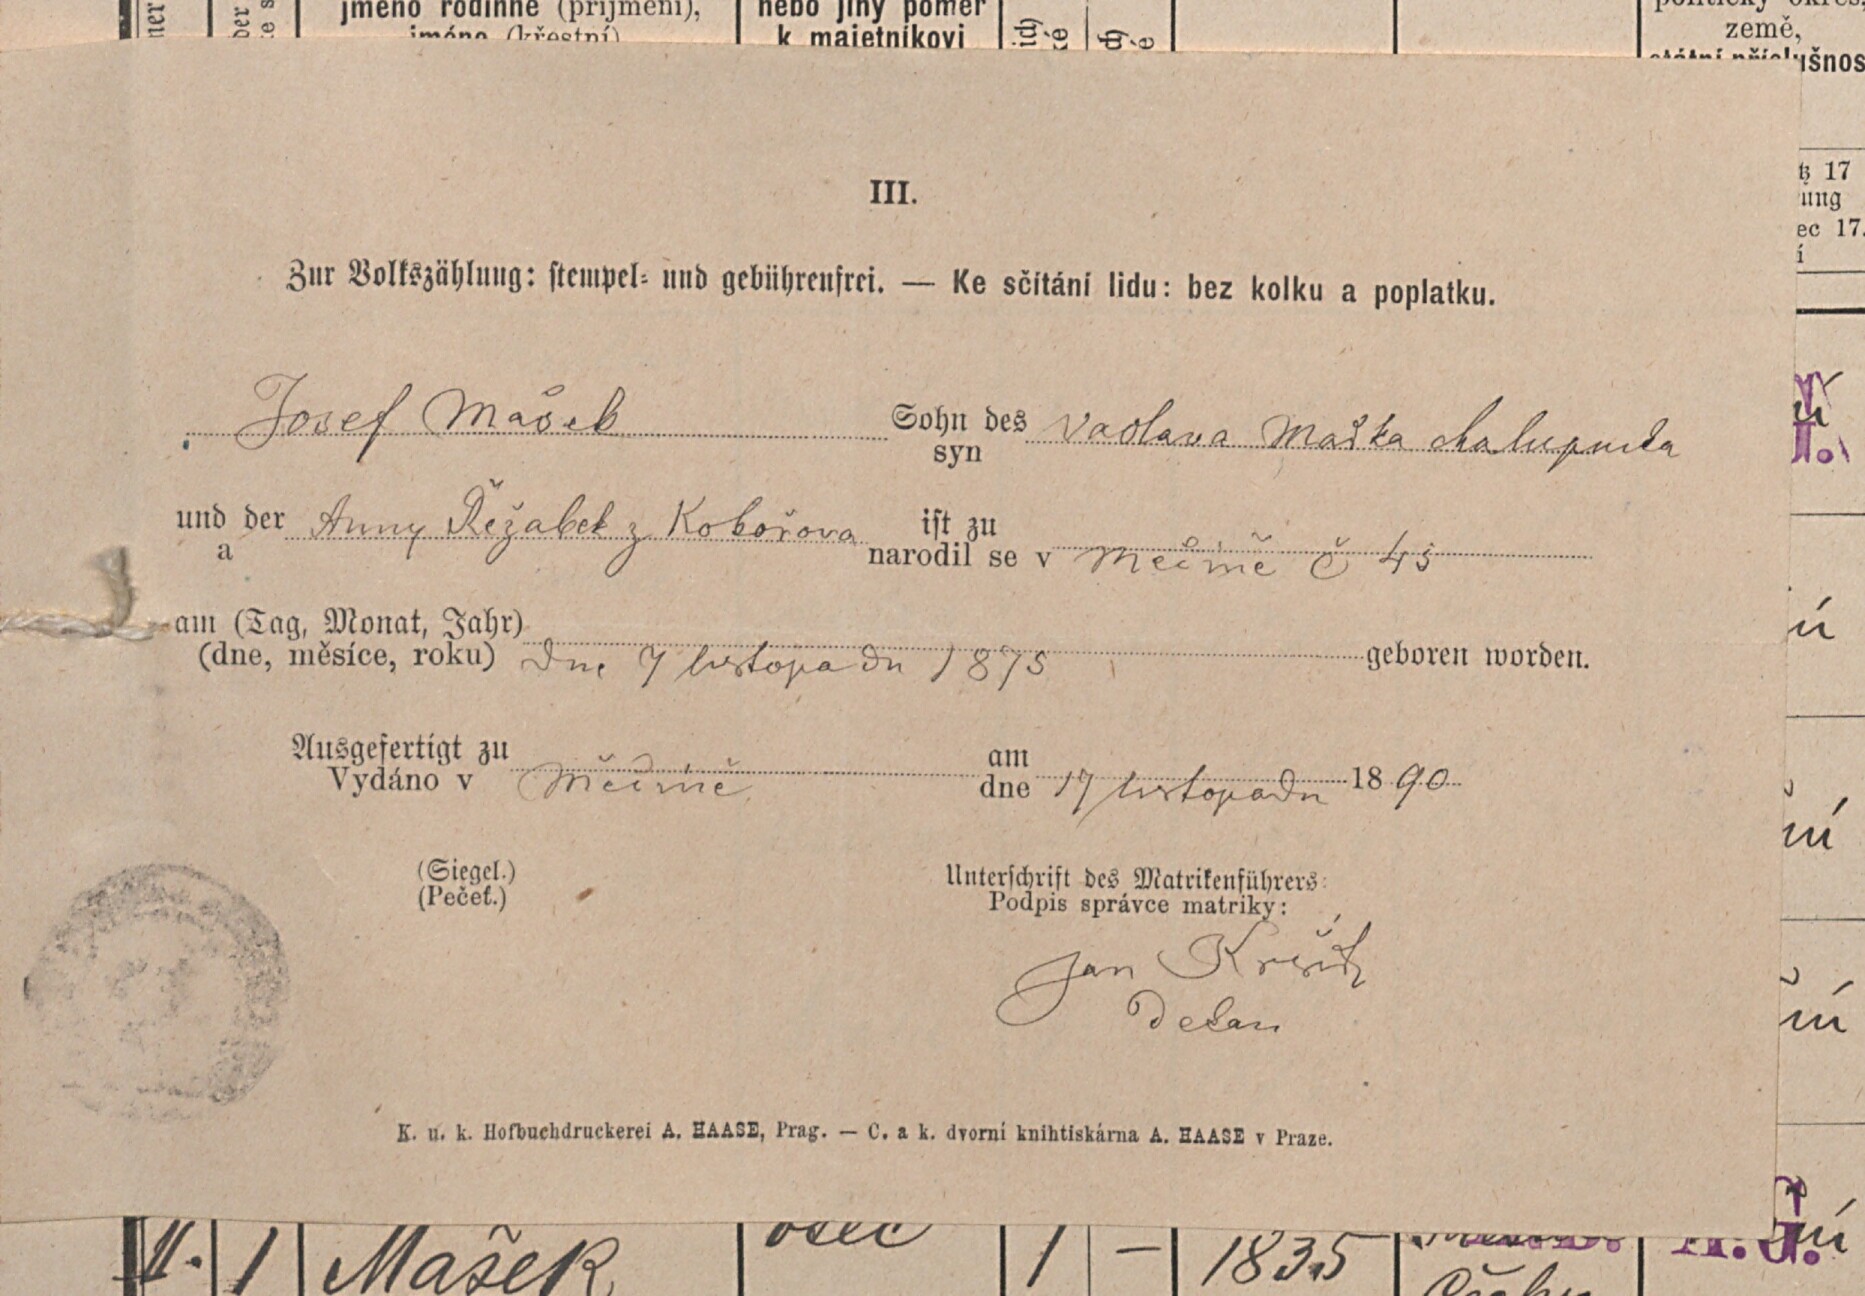 jméno rodinné (příjmení),
jméno (křestní)
nebo jiný poměr
k majetníkovi
politický okres,
země,
státní příslušnos
III.
Zur Volkszählung: stempel- und gebührenfrei. — Ke sčítání lidu: bez kolku a poplatku.
Josef Mašek Sohn des Vaclava Maška chalupníka
syn
und der Anny Řežabek z Kokořova ist zu
a narodil se v Měčíně č 45
am (Tag, Monat, Jahr)
(dne, měsíce, roku) dne 7 listopadu 1875 geboren worden.
Ausgefertigt zu am
Vydáno v Měčíně dne 17 listopadu 1890
(Siegel.) Unterschrift des Matrikenführers:
(Pečeť.) Podpis správce matriky:
Jan
Děkan
K. u. k. Hofbuchdruckerei A. HAASE, Prag. — C. a k. dvorní knihtiskárna A. HAASE v Praze.
tz 17
ung
ec 17.
í
II. 1 Mašek otec 1 — 1835